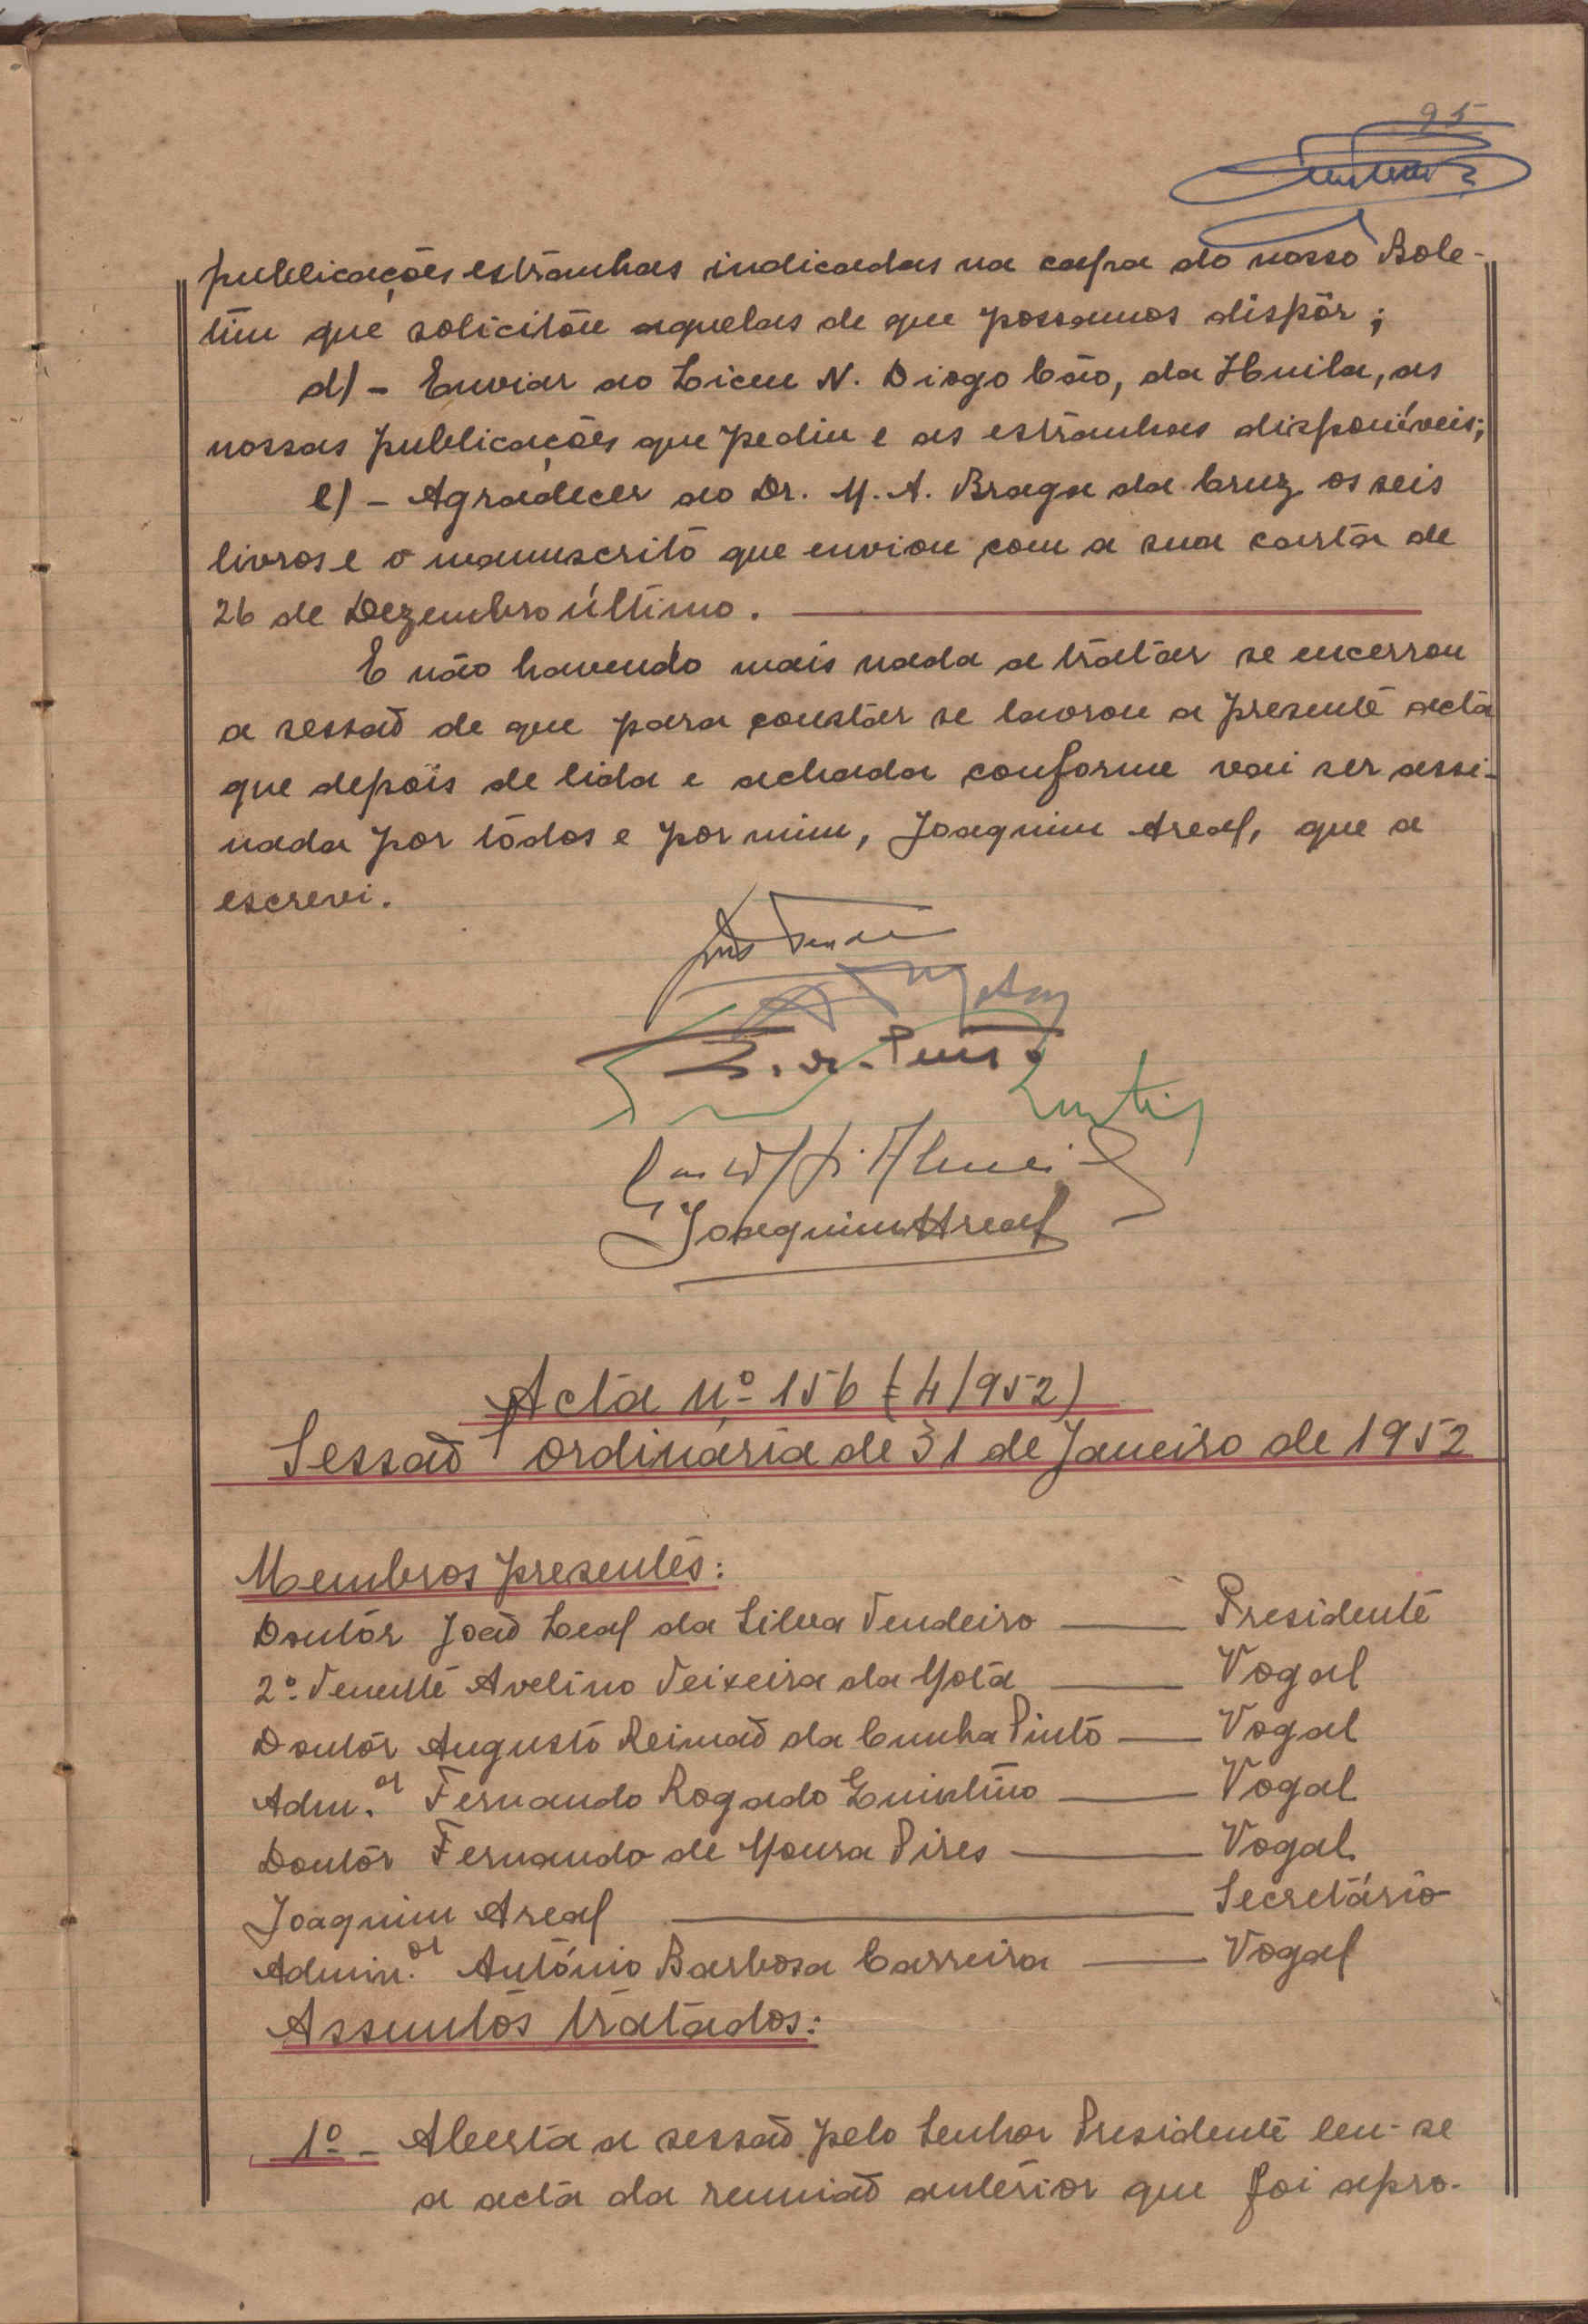 95
publicações estranhas indicadas na capa do nosso Bole-
tim que solicitou aquelas de que possamos dispôr;
d) - Enviar ao Liceu N. Diogo Cão, da Huila, as
nossas publicações que pediu e as estranhas disponíveis;
e) - Agradecer ao Dr. M. A. Braga da Cruz os seis
livros e o manuscrito que enviou com a sua carta de
26 de Dezembro último.
E não havendo mais nada a tratar se encerrou
a sessão de que para constar se lavrou a presente acta
que depois de lida e achada conforme vai ser assi-
nada por todos e por mim, Joaquim Areal, que a
escrevi.
Joaquim Areal
Acta nº 156 (4/952)
Sessão ordinária de 31 de Janeiro de 1952
Membros presentes:
Doutor João Leal da Silva Tendeiro — Presidente
2º Tenente Avelino Teixeira da Mota — Vogal
Doutor Augusto Reimão da Cunha Pinto — Vogal
Adm.or Fernando Rogado Quintino — Vogal
Doutor Fernando de Moura Pires — Vogal
Joaquim Areal — Secretário
Admin.or António Barbosa Carreira — Vogal
Assuntos tratados:
1º - Aberta a sessão pelo Senhor Presidente leu-se
a acta da reunião anterior que foi apro-